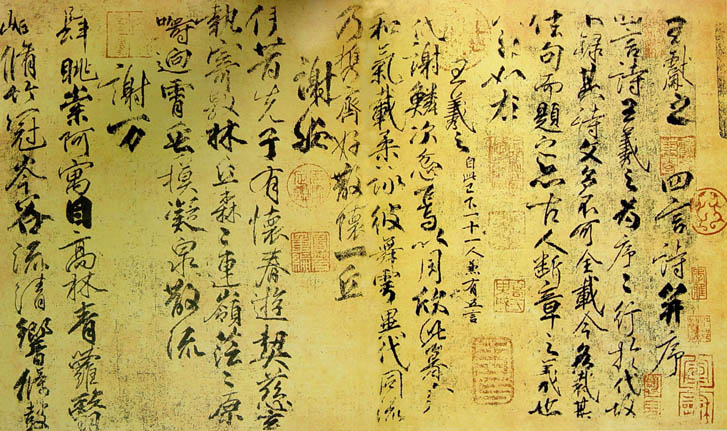 王獻之四言詩并序
四言詩王羲之為序序行於代故
不錄其詩文多不可全載今各裁其
佳句而題之亦古人斷章之義也
如左
王羲之 自此已下一十一人兼有五言
代謝鱗次忽焉以周欣此暮春
和氣載柔詠彼舞雩異代同流
乃携齊好散懷一丘
謝安
伊昔先子有懷春遊契茲言
執寄敖林丘森森連嶺茫茫原
疇迥霄垂霧凝泉散流
謝万
肆眺崇阿寓目高林青蘿翳
岫脩竹冠岑谷流清響條鼓